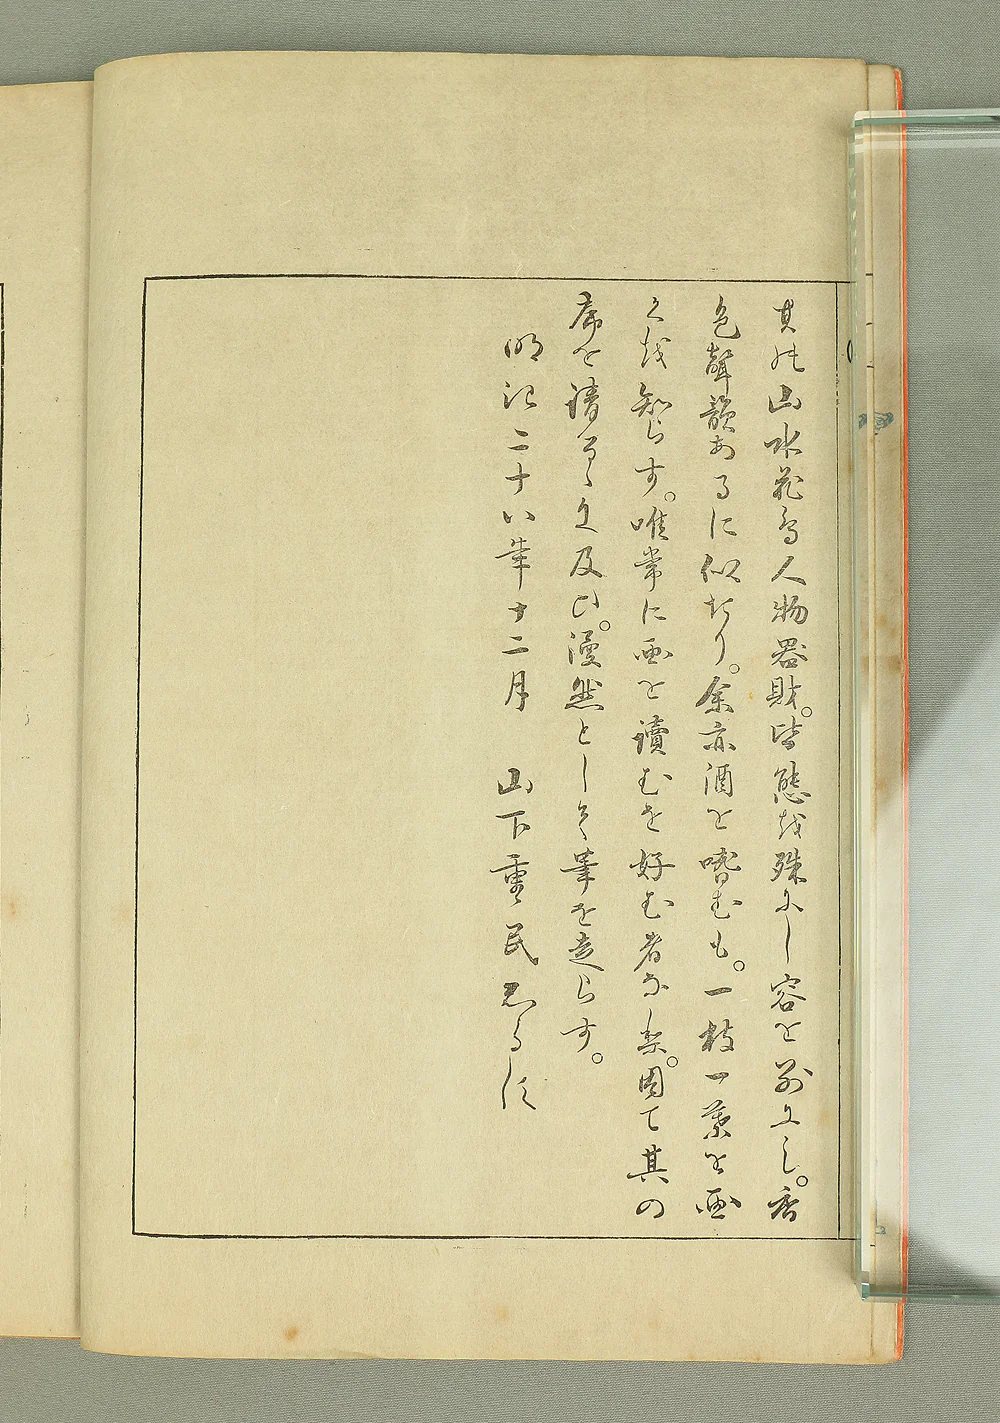 其他山水花鳥人物器財。皆態を殊にし容を別にし。香
色聲韻あるに似たり。余亦酒を嗜むも。一枝一葉を画
くを知らす。唯常に画を讀むを好む者なり。因て其の
席を請るゝに及ひ。漫然として筆を走らす。
明治二十八年十二月　山下重民しるす